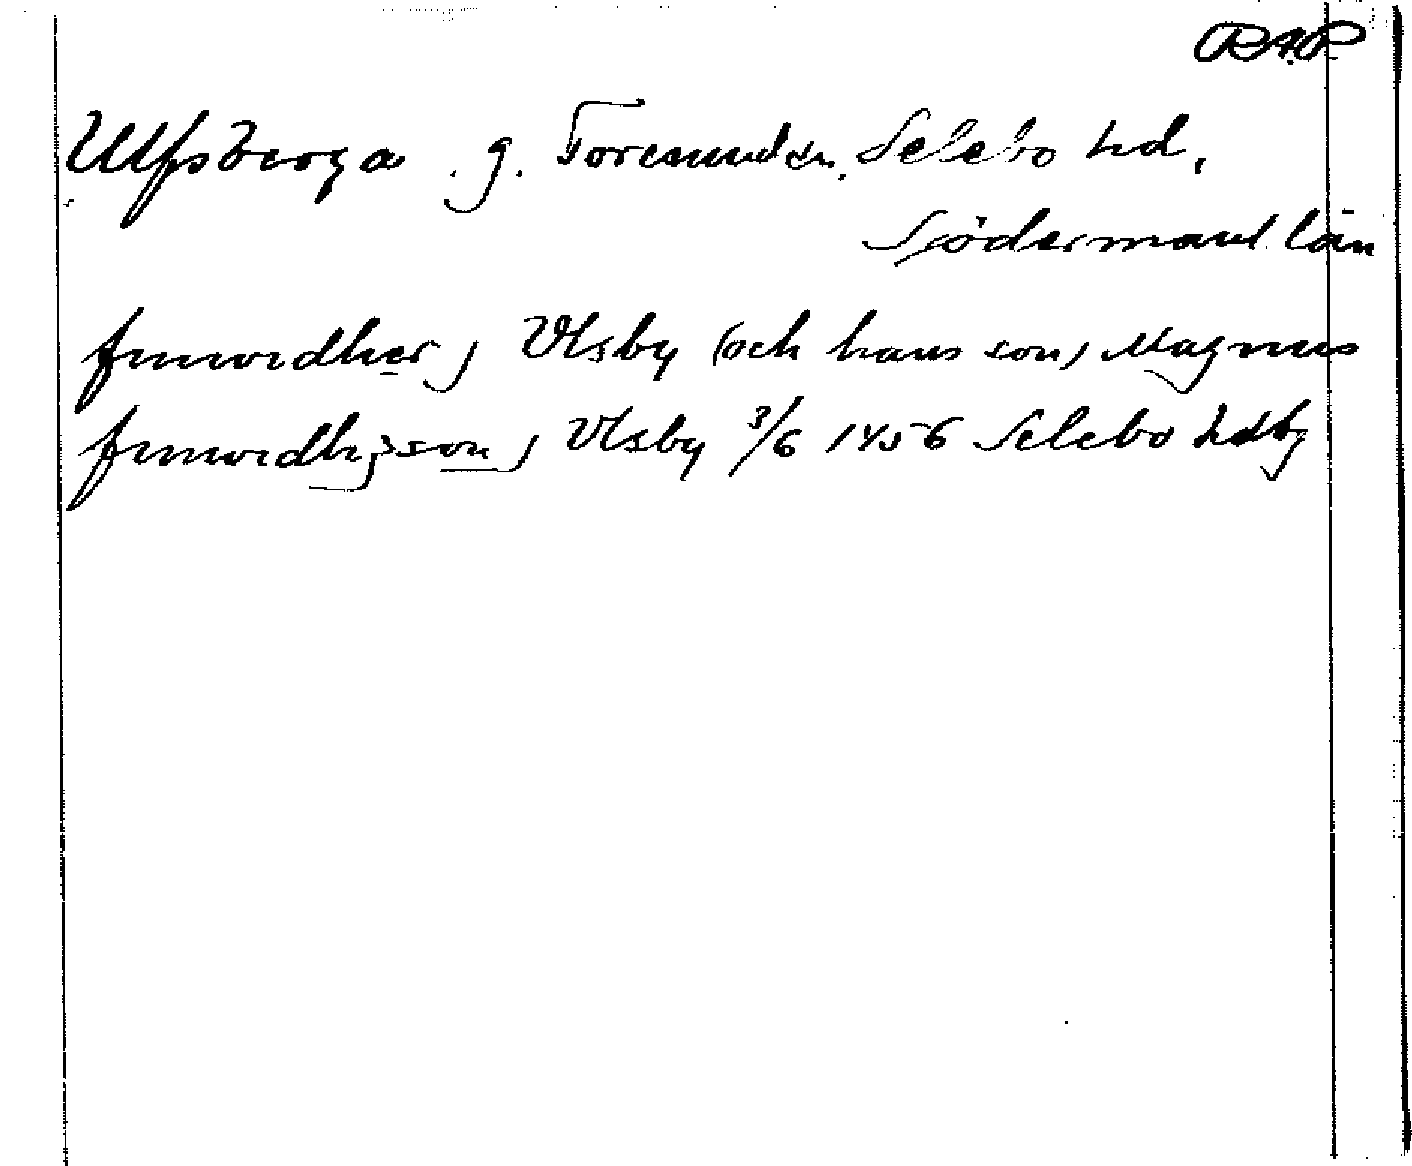 RAP
Ulfsberga g. Toresunds sn. Selebo hd,
Södermanl. län
frwidher j Vlsby (och hans son) Magnus
j Vlsby 3/6 1456 Selebo hdb